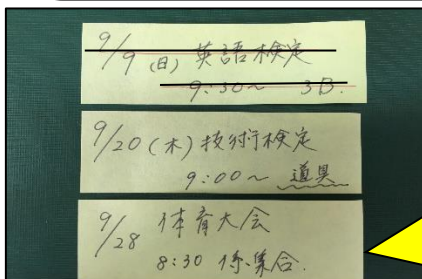 9/9 (日) 英語検定
9:30~ 3B.
9/20 (木) 技術検定
9:00~ 道具
9/28 体育大会
8:30 係集合.